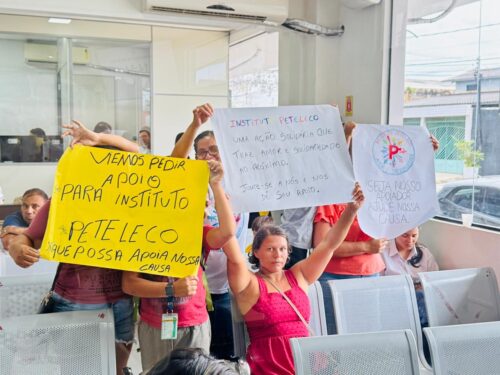 VIEMOS PEDIR
APOIO
PARA INSTITUTO
PETELECO
QUE POSSA APOIA NOSSA
CAUSA
INSTITUT PETELECO
UMA AÇÃO SOLIDÁRIA QUE
TRAZ AMOR E SOLIDARIEDADO
AO PRÓXIMO.
JUNTE-SE A NÓS E NOS
DE SEU APOIO.
SEJA NOSSO
APOIADOR
NOSSA
CAUSA